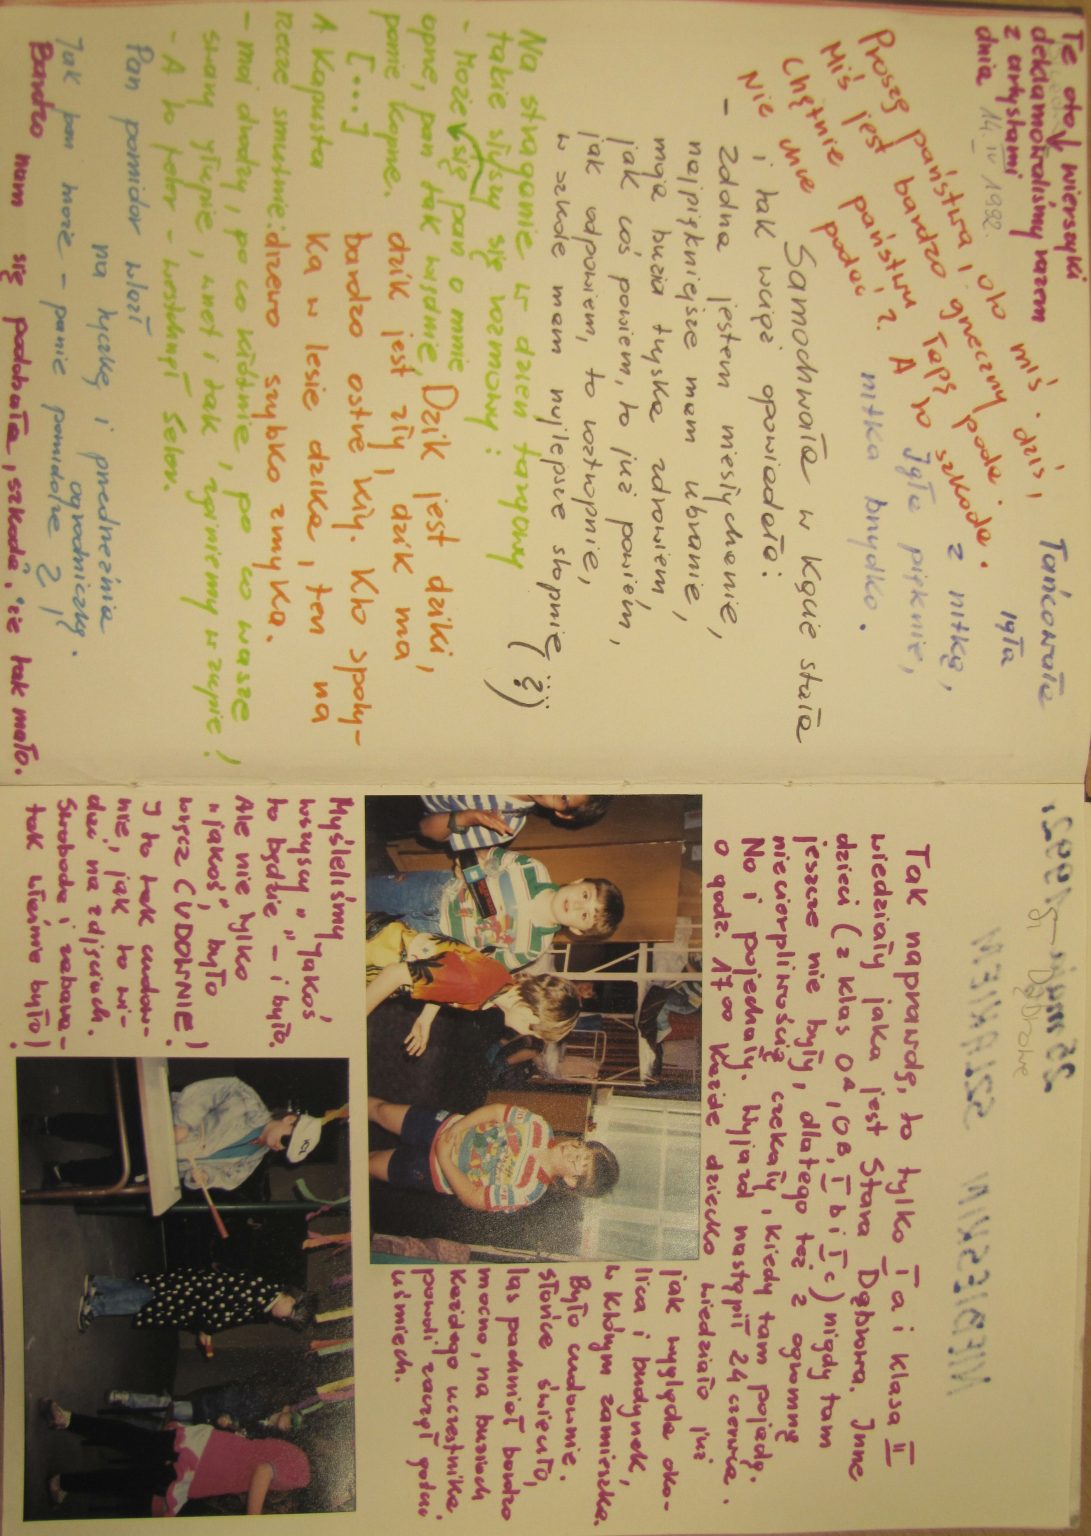 Te oto wierszyki
deklamowaliśmy razem
z artystami
dnia 14. IV 1992.
Proszę państwa, oto miś.
Miś jest bardzo grzeczny dziś,
Chętnie państwu łapę poda.
Nie chce podać? A to szkoda.
Tańcowała
igła
z nitką,
Igła pięknie,
nitka brzydko.
Samochwała w kącie stała
i tak wciąż opowiadała:
- Zdolna jestem niesłychanie,
najpiękniejsze mam ubranie,
moja buzia tryska zdrowiem
jak coś powiem, to już powiem,
jak odpowiem, to roztropnie,
w szkole mam najlepsze stopnie
(...?)
Na straganie w dzień targowy
takie słyszy się rozmowy:
- Może się pan o mnie
oprze, pan tak więdnie,
panie koprze.
[...]
A Kapusta
rzecze smutnie:
- moi drodzy, po co kłótnie, po co wasze
swary głupie, wnet i tak zginiemy w zupie!
- A to feler - westchnął Seler.
Dzik jest dziki,
dzik jest zły, dzik ma
bardzo ostre kły. Kto spoty-
ka w lesie dzika, ten na
drzewo szybko zmyka.
Pan pomidor wlazł
na tyczkę i przedrzeźnia
ogrodniczkę.
Jak pan może - panie pomidorze?!
Bardzo nam się podobało, szkoda, że tak mało.
Tak naprawdę, to tylko I a i klasa II
wiedziały jaka jest Stara Dąbrowa. Inne
dzieci (z klas 0A, 0B, I b i I c) nigdy tam
jeszcze nie były, dlatego też z ogromną
niecierpliwością czekały, kiedy tam pojadą.
No i pojechały. Wyjazd nastąpił 24 czerwca.
o godz. 17⁰⁰ każde dziecko wiedziało już
jak wygląda oko-
lica i budynek,
w którym zamieszka.
Było cudownie.
Słońce świeciło,
las pachniał bardzo
mocno, na buziach
każdego uczestnika
powoli zaczął gościć
uśmiech.
Myśleliśmy
wszyscy „Jakoś
to będzie" - i było.
Ale nie tylko
„jakoś", było
wręcz CUDOWNIE!
I to tak cudow-
nie, jak to wi-
dać na zdjęciach.
Swoboda i zabawa -
tak właśnie było!